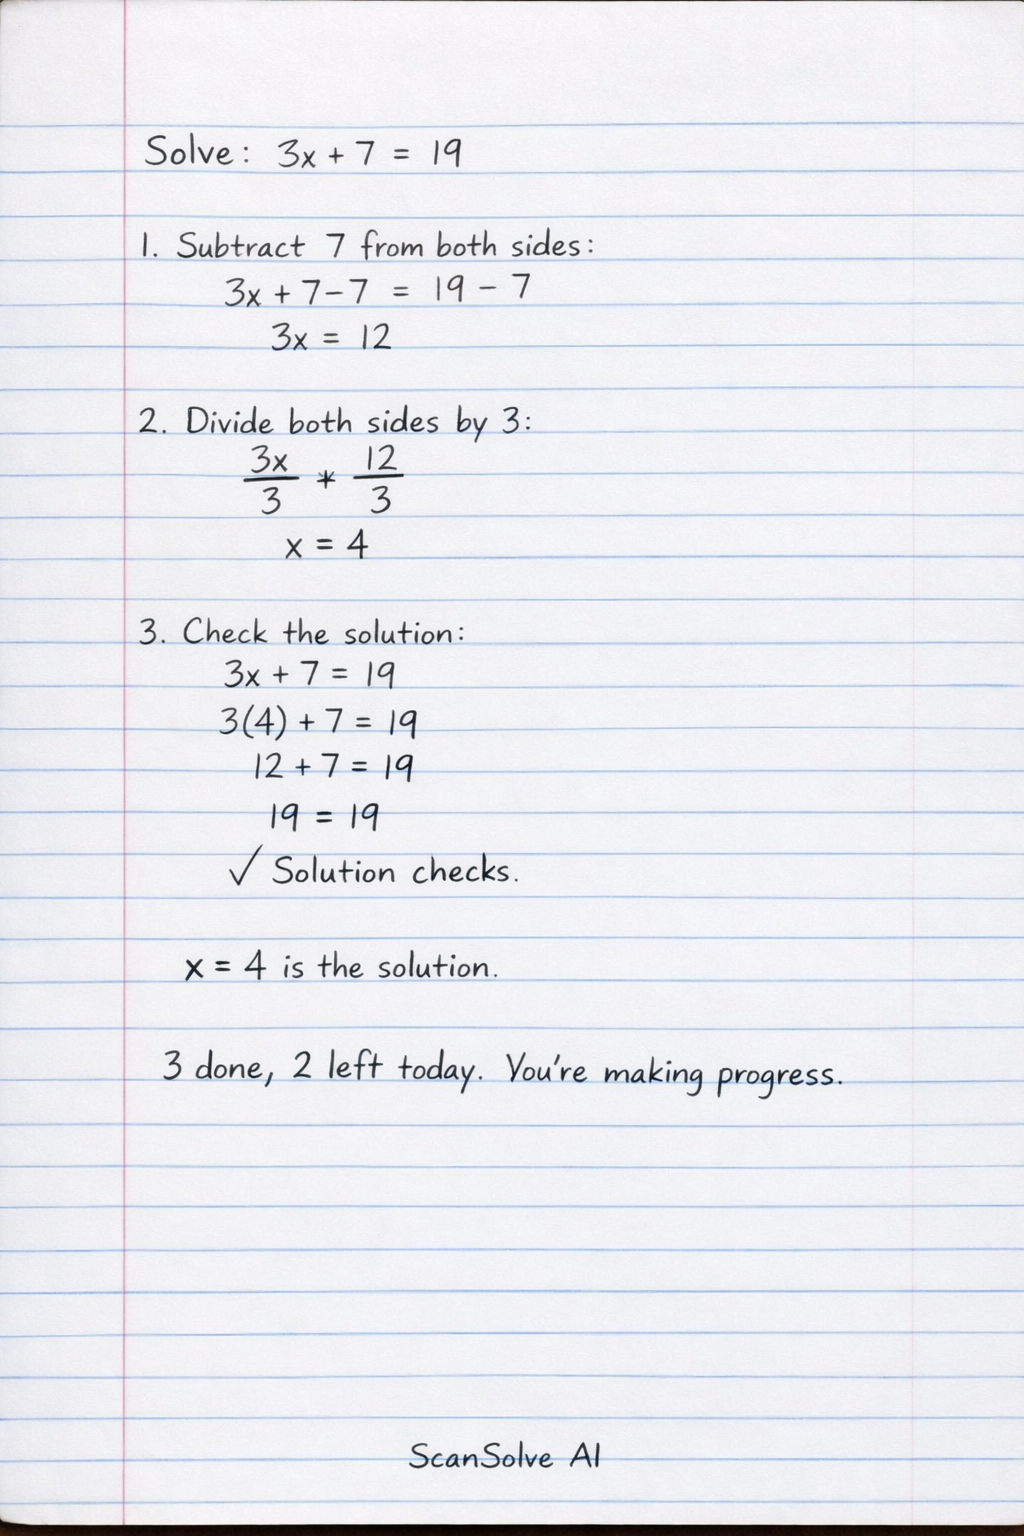 Solve: 3x + 7 = 19
1. Subtract 7 from both sides:
3x + 7 - 7 = 19 - 7
3x = 12
2. Divide both sides by 3:
3x/3 * 12/3
x = 4
3. Check the solution:
3x + 7 = 19
3(4) + 7 = 19
12 + 7 = 19
19 = 19
✓ Solution checks.
x = 4 is the solution.
3 done, 2 left today. You're making progress.
ScanSolve AI